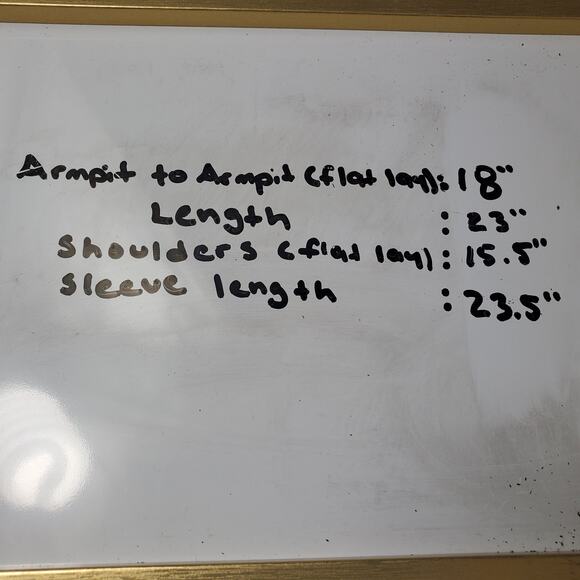 Armpit to Armpit (flat lay): 18"
Length : 23"
Shoulders (flat lay) : 15.5"
Sleeve length : 23.5"